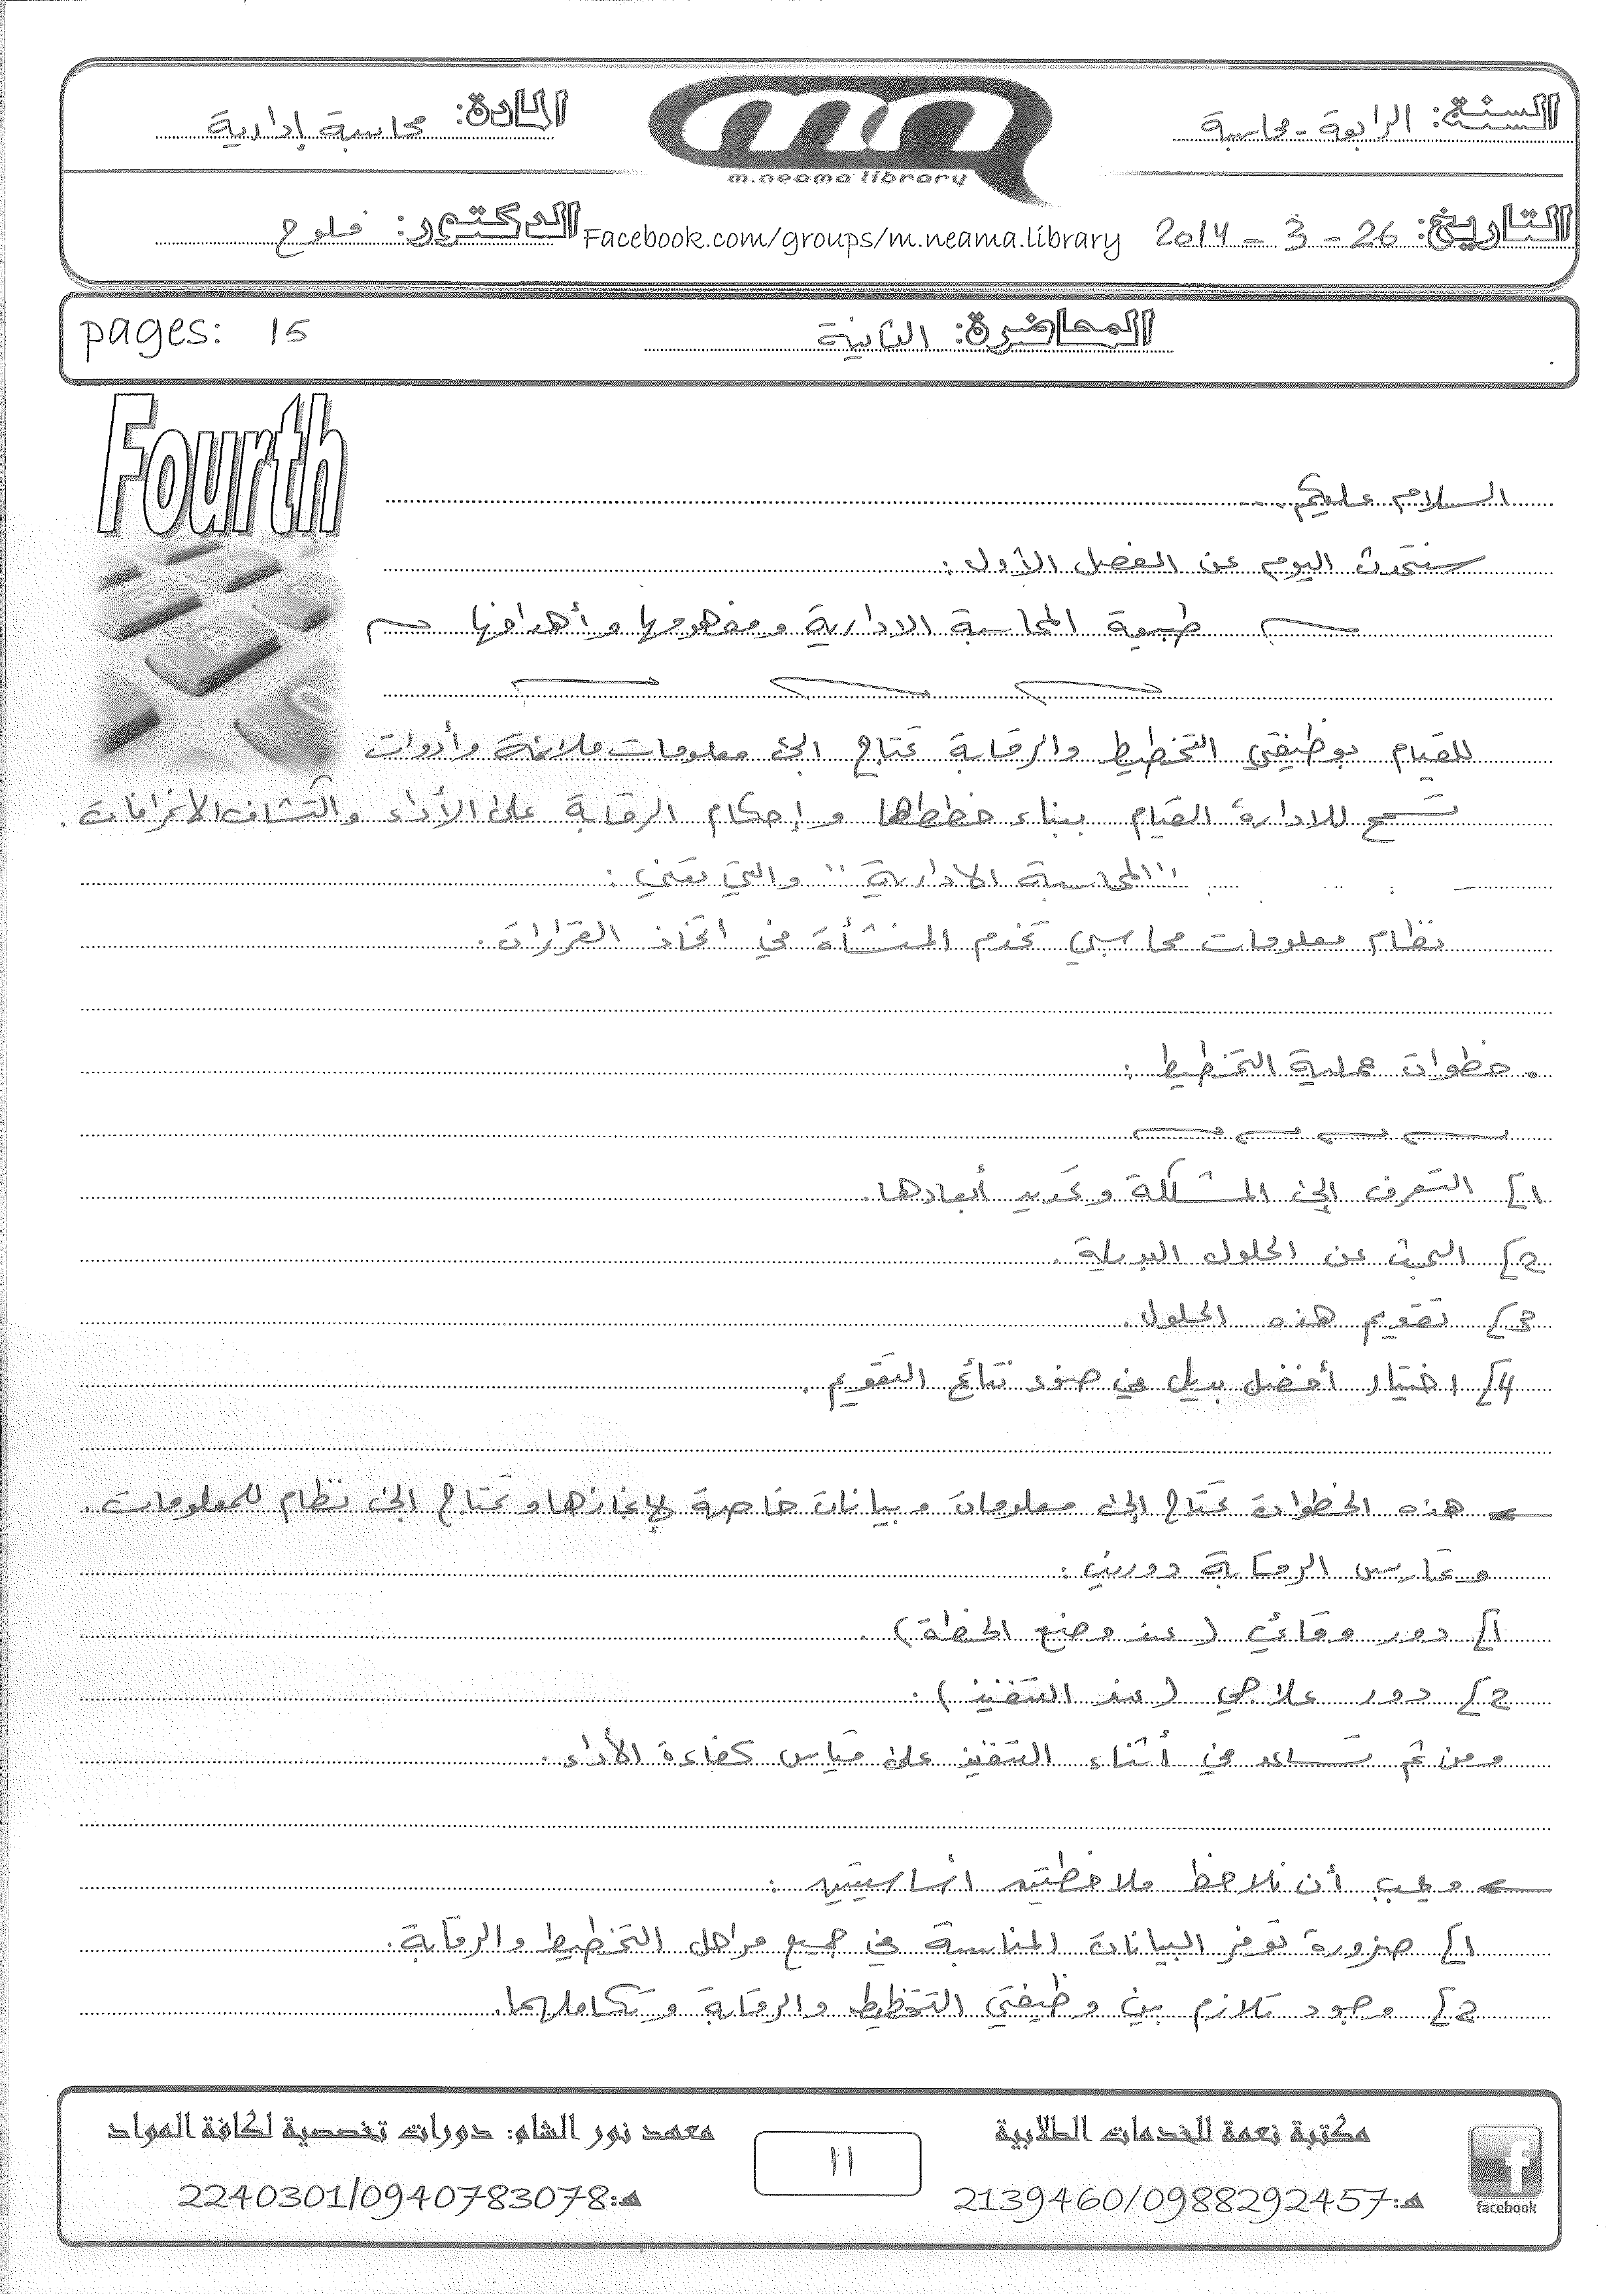 السنة: الرابعة - محاسبة
المادة: محاسبة إدارية
m.neama library
التاريخ: 26 - 3 - 2014
Facebook.com/groups/m.neama.library
الدكتور: فلوح
المحاضرة: الثانية
pages: 15
Fourth
السلام عليكم ..
سنتحدث اليوم عن الفصل الأول :
طبيعة المحاسبة الادارية ومفهومها وأهدافها
للقيام بوظيفتي التخطيط والرقابة نحتاج إلى معلومات ملائمة وأدوات
تسمح للادارة القيام ببناء خططها وإحكام الرقابة على الأداء واكتشاف الانحرافات .
"المحاسبة الادارية" والتي تعني :
نظام معلومات محاسبي تخدم المنشأة في اتخاذ القرارات .
. خطوات عملية التخطيط :
1] التعرف إلى المشكلة وتحديد أبعادها .
2] البحث عن الحلول البديلة .
3] تقويم هذه الحلول .
4] اختيار أفضل بديل في ضوء نتائج التقويم .
هذه الخطوات تحتاج إلى معلومات وبيانات خاصة لإنجازها وتحتاج إلى نظام للمعلومات .
وتمارس الرقابة دورين :
1] دور وقائي ( عند وضع الخطة ) .
2] دور علاجي ( عند التنفيذ ) .
ومن ثم تساعد في أثناء التنفيذ على قياس كفاءة الأداء .
ويجب أن نلاحظ ملاحظتين أساسيتين :
1] ضرورة توفر البيانات المناسبة في جميع مراحل التخطيط والرقابة .
2] وجود تلازم بين وظيفتي التخطيط والرقابة وتكاملهما .
مكتبة نعمة للخدمات الطلابية
معهد نور الشام: دورات تخصصية لكافة المواد
11
هـ:2139460/0988292457
هـ:2240301/0940783078
facebook